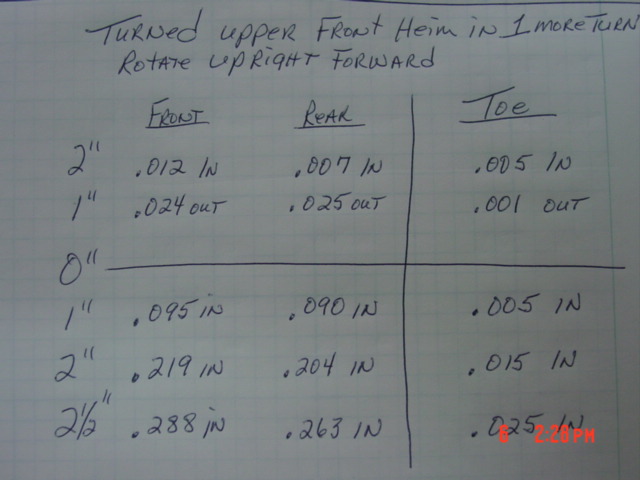 Turned upper Front Heim in 1 more Turn
Rotate upright Forward
Front Rear Toe
2" .012 IN .007 IN .005 IN
1" .024 out .025 out .001 out
0"
1" .095 in .090 IN .005 IN
2" .219 IN .204 IN .015 IN
2½" .288 in .263 IN .025 IN
6 2:28PM